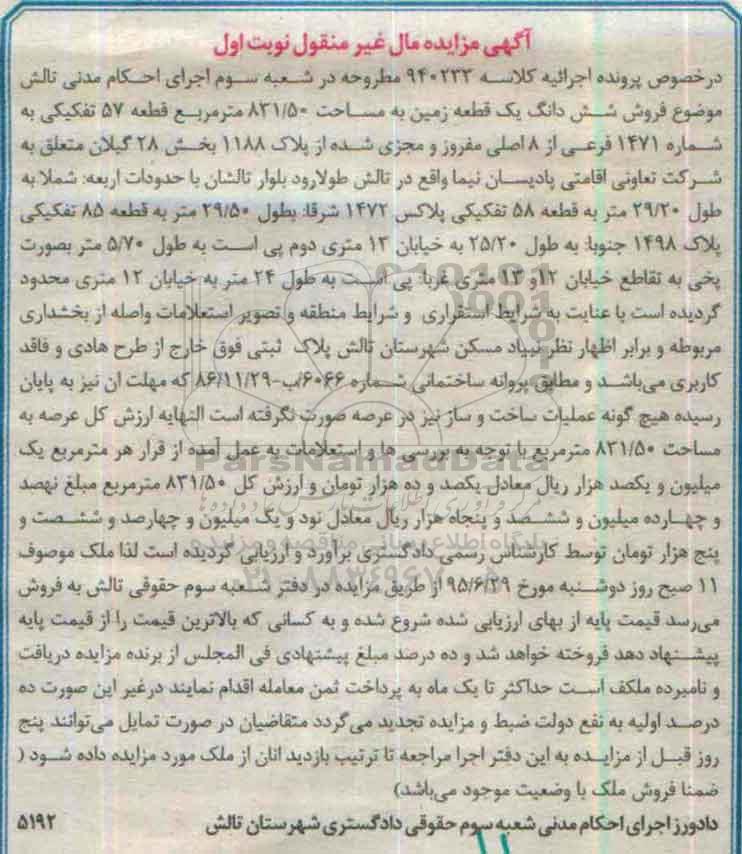 آگهی مزایده مال غیر منقول نوبت اول
درخصوص پرونده اجرائیه کلاسه ۹۴۰۲۳۳ مطروحه در شعبه سوم اجرای احکام مدنی تالش
موضوع فروش شش دانگ یک قطعه زمین به مساحت ۸۳۱/۵۰ مترمربع قطعه ۵۷ تفکیکی به
شماره ۱۴۷۱ فرعی از ۸ اصلی مفروز و مجزی شده از پلاک ۱۱۸۸ بخش ۲۸ گیلان متعلق به
شرکت تعاونی اقامتی پادیسان نیما واقع در تالش طولارود بلوار تالشان با حدودات اربعه: شملا به
طول ۲۹/۲۰ متر به قطعه ۵۸ تفکیکی پلاکس ۱۴۷۲ شرقا: بطول ۲۹/۵۰ متر به قطعه ۸۵ تفکیکی
پلاک ۱۴۹۸ جنوبا: به طول ۲۵/۲۰ به خیابان ۱۳ متری دوم پی است به طول ۵/۷۰ متر بصورت
پخی به تقاطع خیابان ۱۲و ۱۳ متری غربا: پی است به طول ۲۴ متر به خیابان ۱۲ متری محدود
گردیده است با عنایت به شرایط استقراری و شرایط منطقه و تصویر استعلامات واصله از بخشداری
مربوطه و برابر اظهار نظر بنیاد مسکن شهرستان تالش پلاک ثبتی فوق خارج از طرح هادی و فاقد
کاربری می‌باشد و مطابق پروانه ساختمانی شماره ۶۰۶۶/ب-۸۶/۱۱/۲۹ که مهلت ان نیز به پایان
رسیده هیچ گونه عملیات ساخت و ساز نیز در عرصه صورت نگرفته است النهایه ارزش کل عرصه به
مساحت ۸۳۱/۵۰ مترمربع با توجه به بررسی ها و استعلامات به عمل آمده از قرار هر مترمربع یک
میلیون و یکصد هزار ریال معادل یکصد و ده هزار تومان و ارزش کل ۸۳۱/۵۰ مترمربع مبلغ نهصد
و چهارده میلیون و ششصد و پنجاه هزار ریال معادل نود و یک میلیون و چهارصد و شصت و
پنج هزار تومان توسط کارشناس رسمی دادگستری براورد و ارزیابی گردیده است لذا ملک موصوف
۱۱ صبح روز دوشنبه مورخ ۹۵/۶/۲۹ از طریق مزایده در دفتر شعبه سوم حقوقی تالش به فروش
می‌رسد قیمت پایه از بهای ارزیابی شده شروع شده و به کسانی که بالاترین قیمت را از قیمت پایه
پیشنهاد دهد فروخته خواهد شد و ده درصد مبلغ پیشنهادی فی المجلس از برنده مزایده دریافت
و نامبرده ملکف است حداکثر تا یک ماه به پرداخت ثمن معامله اقدام نمایند درغیر این صورت ده
درصد اولیه به نفع دولت ضبط و مزایده تجدید می‌گردد متقاضیان در صورت تمایل می‌توانند پنج
روز قبل از مزایده به این دفتر اجرا مراجعه تا ترتیب بازدید انان از ملک مورد مزایده داده شود (
ضمنا فروش ملک با وضعیت موجود می‌باشد)
دادورز اجرای احکام مدنی شعبه سوم حقوقی دادگستری شهرستان تالش ۵۱۹۲
ParsNamadData
پایگاه اطلاع رسانی مناقصه و مزایده